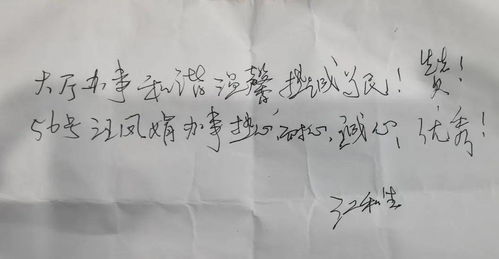 大厅办事和谐温馨挚诚为民！赞！
56号汪凤娟办事热心、耐心、诚心，优秀！
江和生